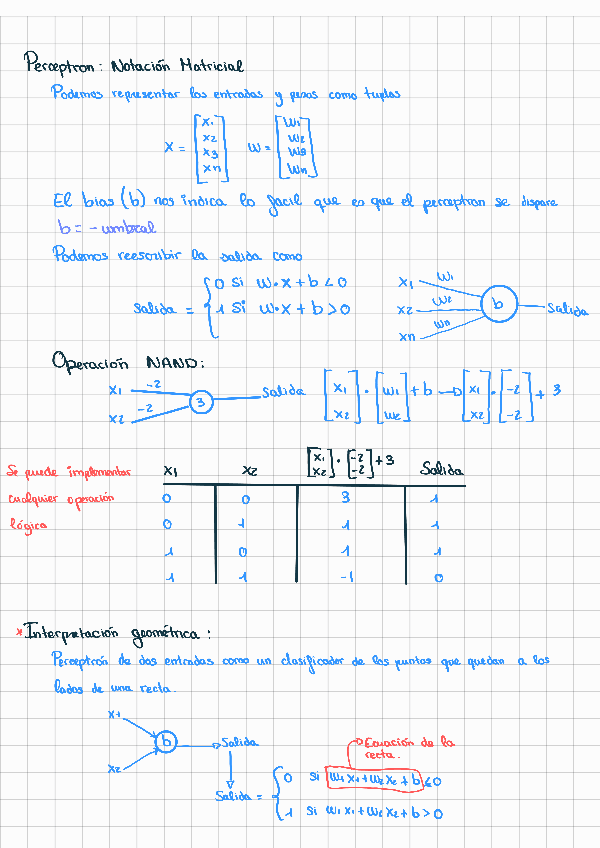 Perceptron: Notación Matricial
Podemos representar las entradas y pesos como tuplas
X = [x1 x2 x3 xn] W = [W1 W2 W3 Wn]
El bias (b) nos indica lo facil que es que el perceptron se dispare
b = - umbral
Podemos reescribir la salida como
Salida = { 0 si W·X + b < 0
1 si W·X + b > 0
x1 W1
x2 W2 b Salida
xn W3
Operación NAND:
x1 -2
x2 -2 3 Salida
[x1 x2] · [W1 W2] + b → [x1 x2] · [-2 -2] + 3
Se puede implementar
cualquier operación
lógica
x1 x2 [x1 x2] · [-2 -2] + 3 Salida
0 0 3 1
0 1 1 1
1 0 1 1
1 1 -1 0
* Interpretación geométrica:
Perceptrón de dos entradas como un clasificador de los puntos que quedan a los
lados de una recta.
x1
x2 b Salida
Ecuación de la
recta.
Salida = { 0 si W1X1+W2X2+b ≤ 0
1 si W1X1+W2X2+b > 0